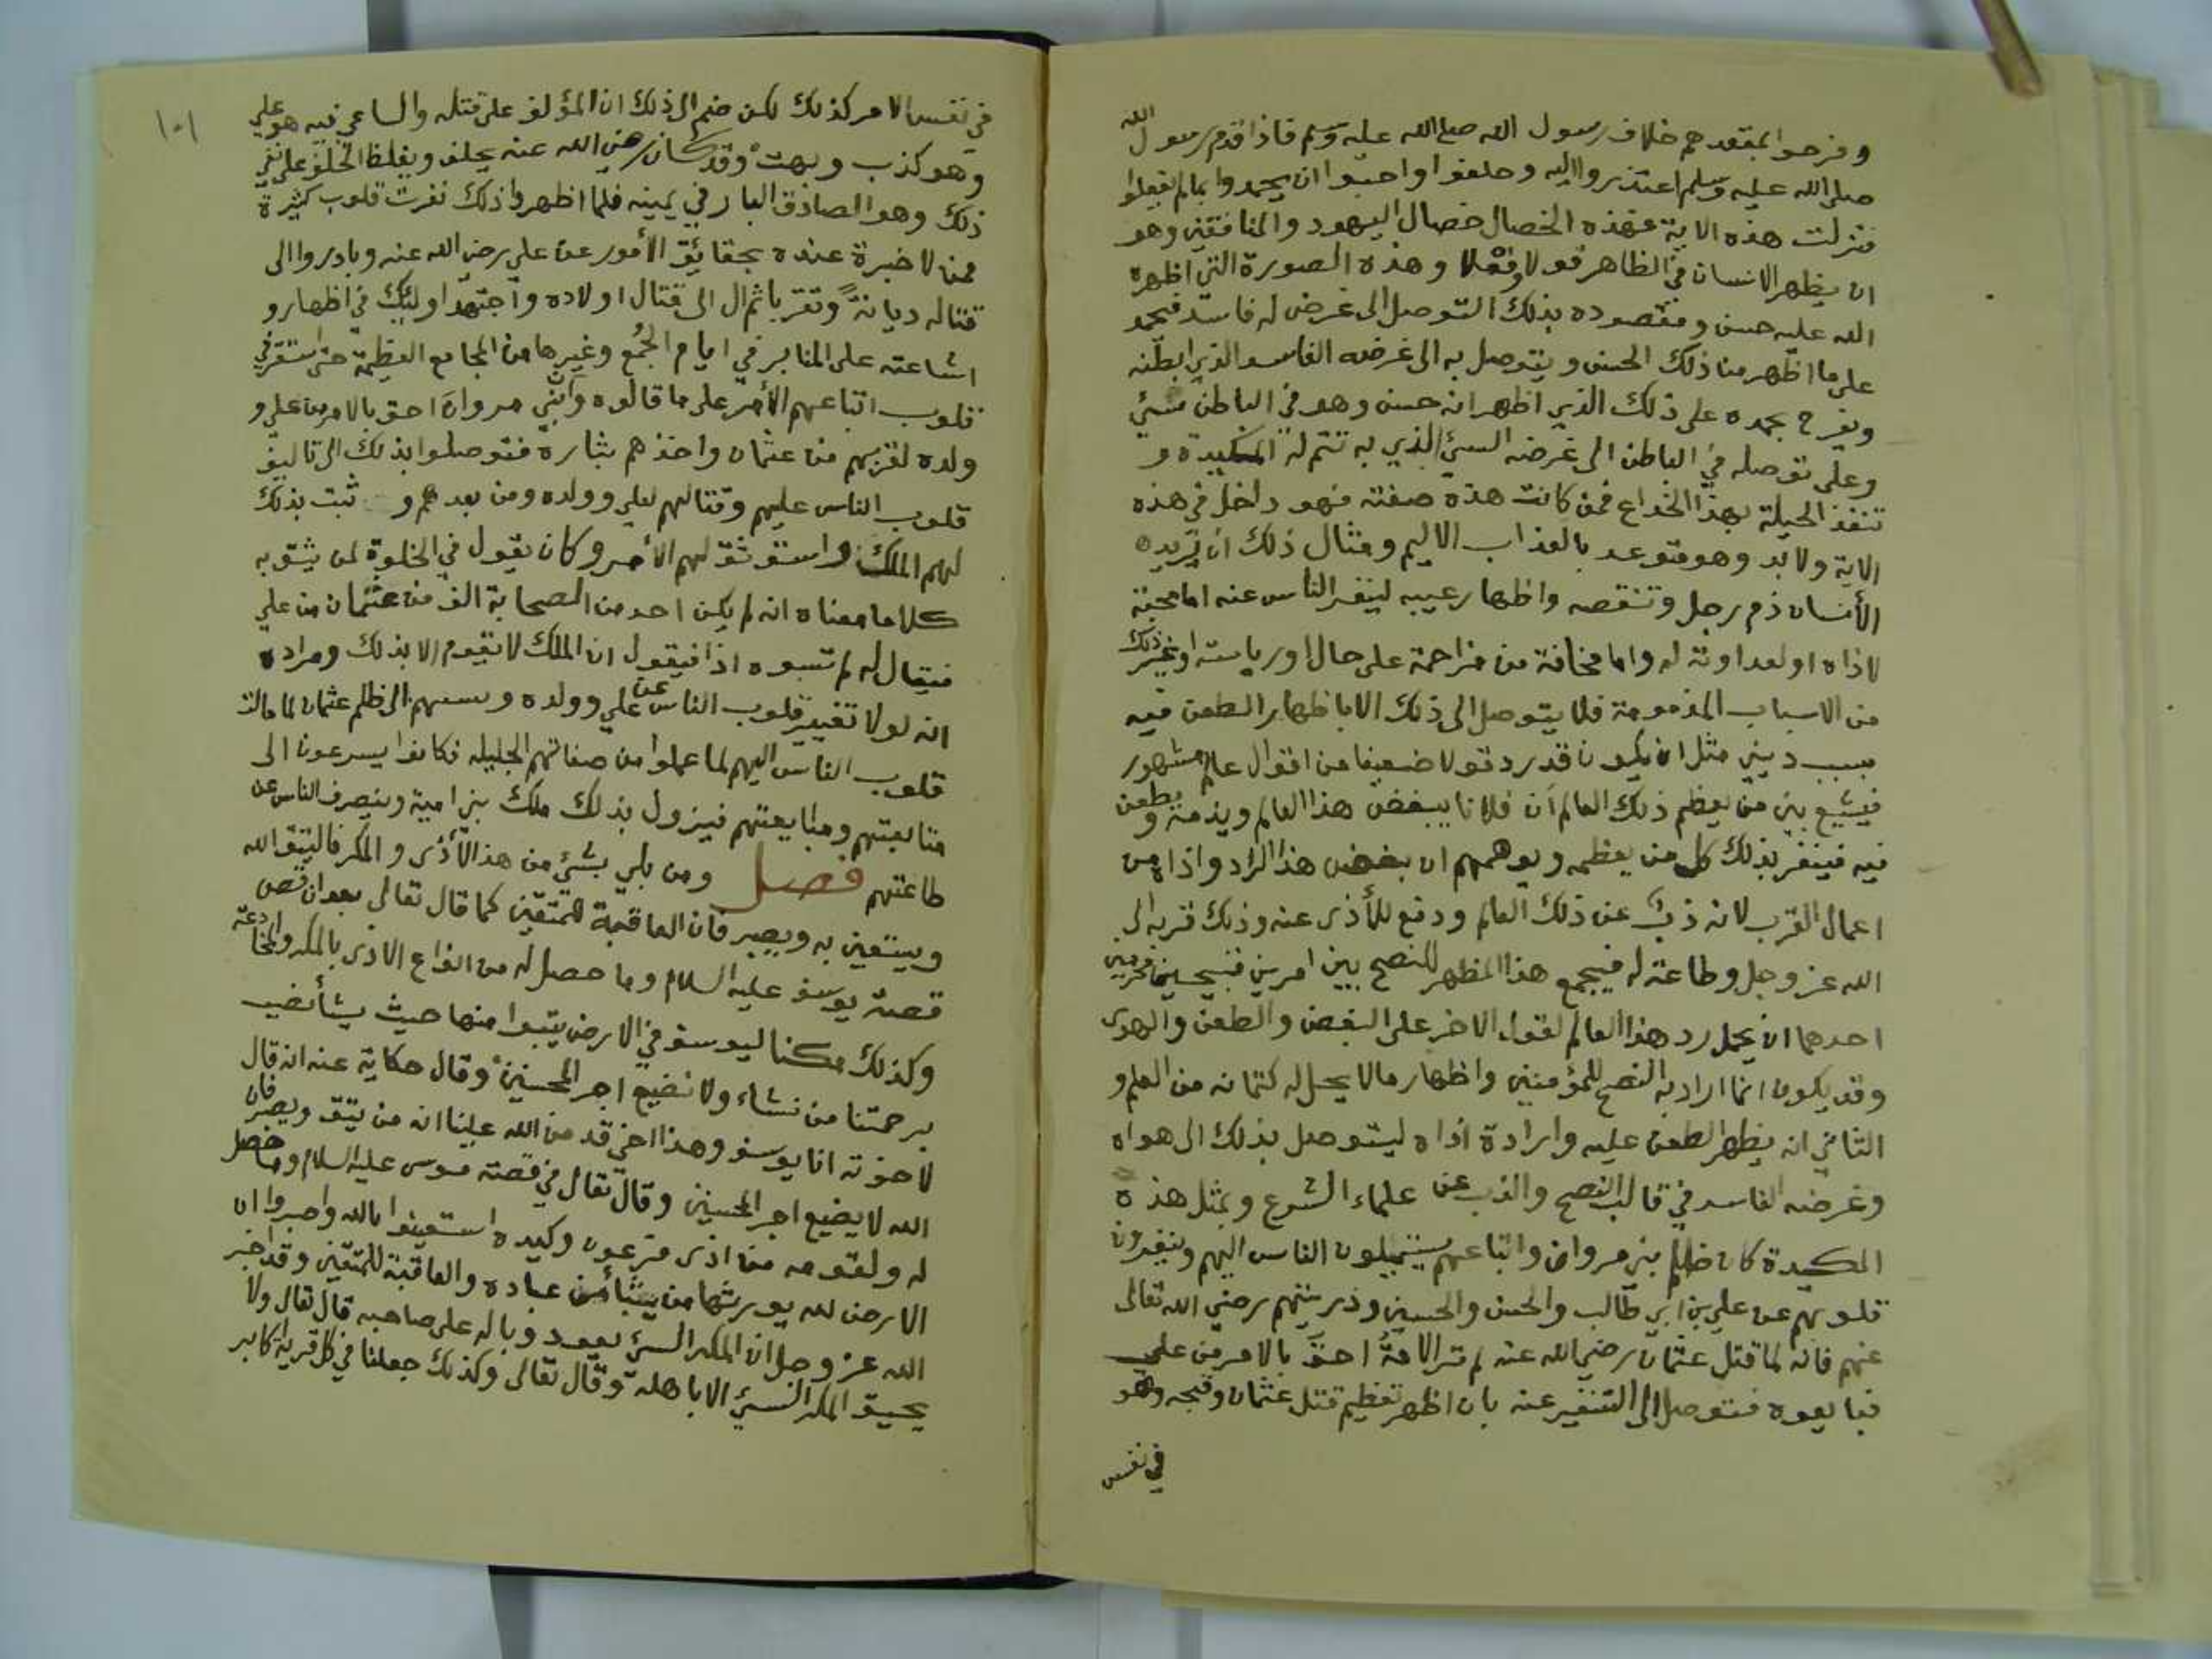 وفرحوا بمقعدهم خلاف رسول الله صلى الله عليه وسلم فاذا قدم رسول الله
صلى الله عليه وسلم اعتذروا اليه وحلفوا واحبوا ان يحمدوا بما لم يفعلوا
فنزلت هذه الاية فهذه الخصال خصال اليهود والمنافقين وهو
ان يظهر الانسان في الظاهر قولا وفعلا وهذه الصورة التي اظهره
الله عليه حسن ومقصوده بذلك التوصل الى غرض له فاسد فيحمد
على ما اظهر من ذلك الحسن ويتوصل به الى غرضه الفاسد الذي ابطنه
ويفرح بحمده على ذلك الذي اظهر انه حسن وهو في الباطن سيئ
وعلى توصله في الباطن الى غرضه السيئ الذي به تتم له المكيدة و
تنفذ الحيلة بهذا الخداع فمن كانت هذه صفته فهو داخل في هذه
الاية ولابد وهو متوعد بالعذاب الاليم ومثال ذلك ان يريد
الأنسان ذم رجل وتنقصه واظهار عيبه لينفر الناس عنه اما محبة
لاذاه او لعداوته له واما مخافة من مزاحمة على حال او رياسة او غير ذلك
من الاسباب المذمومة فلا يتوصل الى ذلك الا باظهار الطعن فيه
بسبب ديني مثل ان يكون قد رد قولا ضعيفا من اقوال عالم مشهور
فيشيع بين من يعظم ذلك العالم أن فلانا يبغض هذا العالم ويذمه ويطعن
فيه فينفر بذلك كل من يعظمه ويوهمهم ان بغض هذا الراد واذاه من
اعمال القرب لانه ذب عن ذلك العالم ودفع للأذى عنه وذلك قربه الى
الله عز وجل وطاعة له فيجمع هذا المظهر للنصح بين امرين قبيحين محرمين
احدهما ان يحمل رد هذا العالم لقول الاخر على البغض والطعن والهوى
وقد يكون انما اراد به النصح للمؤمنين واظهار ما لا يحل له كتمانه من العلم و
الثاني انه يظهر الطعن عليه وارادة اذاه ليتوصل بذلك الى هواه
وغرضه الفاسد في قالب النصح والذب عن علماء الشرع وبمثل هذه
المكيدة كان ظلم بني مروان واتباعهم يستميلون الناس اليهم وينفرون
قلوبهم عن علي بن ابي طالب والحسن والحسين وذريتهم رضي الله تعالى
عنهم فانه لما قتل عثمان رضي الله عنه لم تر الامة احق بالامر من علي
فبايعوه فتوصل الى التنفير عنه بان اظهر تعظيم قتل عثمان وقبحه وهو
في نفس
١٠١
في نفس الامر كذلك لكن ضم الى ذلك ان المؤلف على قتله والساعي فيه هو علي
وهو كذب وبهت وقد كان رضي الله عنه يحلف ويغلظ الحلف على نفي
ذلك وهو الصادق البار في يمينه فلما اظهروا ذلك نفرت قلوب كثيرة
ممن لا خبرة عنده بحقائق الأمور عن علي رضي الله عنه وبادروا الى
قتاله ديانةً وتقربا ثم الى قتال اولاده واجتهد اولئك في اظهار و
اشاعته على المنابر في ايام الجُمع وغيرها من المجامع العظيمة حتى استقر في
قلوب اتباعهم الأمر على ما قالوه وأن بني مروان احق بالامر من علي و
ولده لقربهم من عثمان واخذهم بثاره فتوصلوا بذلك الى تاليف
قلوب الناس عليهم وقتالهم لعلي وولده ومن بعدهم و ثبت بذلك
لهم الملك واستوثق لهم الأمر وكان يقول في الخلوة لمن يثق به
كلاما معناه انه لم يكن احد من الصحابة الف من عثمان من علي
فيقال له لم تسبوه اذا فيقول ان الملك لا يقوم الا بذلك ومراده
انه لولا تغيير قلوب الناس عن علي وولده ونسبهم الى ظلم عثمان لما مالت
قلوب الناس اليهم لما عملوا من صفاتهم الجليله فكانوا يسرعون الى
متابعتهم ومبايعتهم فيزول بذلك ملك بني امية وينصرف الناس عن
طاعتهم فصل ومن بلي بشيء من هذا الأذى والمكر فاليتق الله
ويستعين به ويصبر فان العاقبة للمتقين كما قال تعالى بعد ان قص
قصة يوسف عليه السلام وما حصل له من انواع الاذى بالمكر والمخادعة
وكذلك مكنا ليوسف في الارض يتبوا منها حيث يشأ نصيب
برحمتنا من نشاء ولا نضيع اجر المحسنين وقال حكاية عنه انه قال
لاخوته انا يوسف وهذا اخي قد من الله علينا انه من يتق ويصبر فان
الله لا يضيع اجر المحسنين وقال تعالى في قصة موسى عليه السلام وما حصل
له ولقومه من اذى فرعون وكيده استعينوا بالله واصبروا ان
الارض لله يورثها من يشأ من عباده والعاقبة للمتقين وقد اخبر
الله عز وجل ان المكر السيئ يعود وباله على صاحبه قال تعالى ولا
يحيق المكر السيئ الا باهله وقال تعالى وكذلك جعلنا في كل قرية اكابر